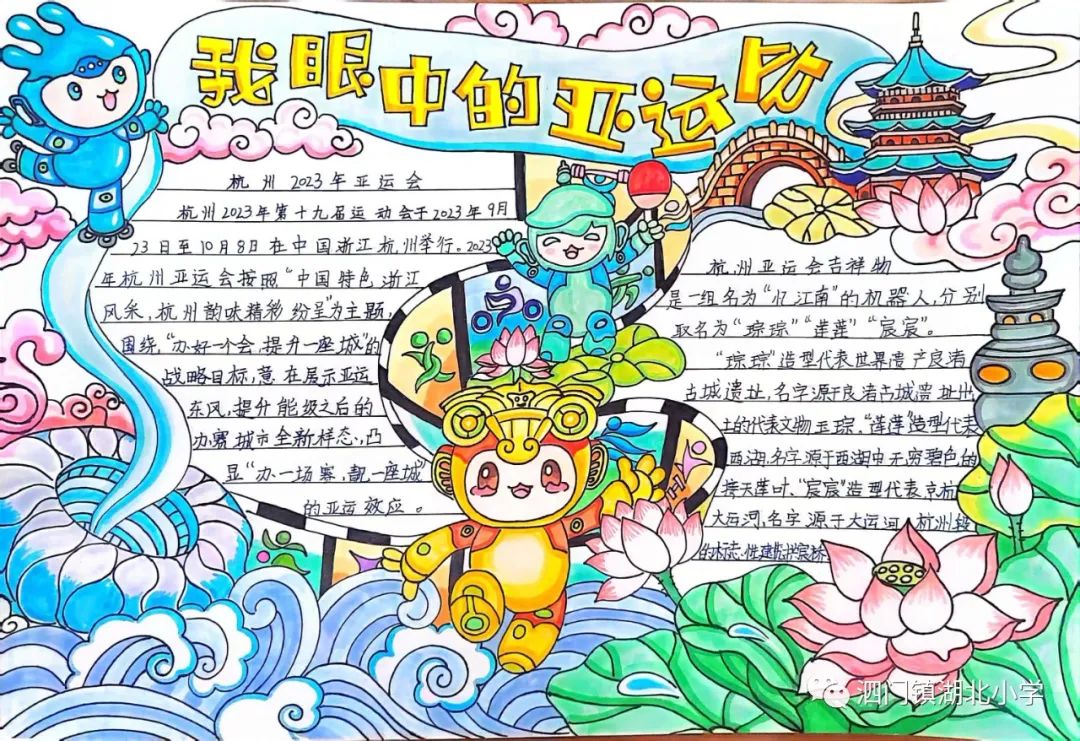 我眼中的亚运会
杭州 2023年亚运会
杭州2023年第十九届运动会于2023年9月
23日至10月8日在中国浙江杭州举行。2023
年杭州亚运会按照“中国特色浙江
风采,杭州韵味精彩纷呈”为主题,
围绕,“办好一个会,提升一座城”的
战略目标,意在展示亚运
东风,提升能级之后的
办赛城市全新样态,凸
显“办一场赛,靓一座城”
的亚运效应。
杭州亚运会吉祥物
是一组名为“忆江南”的机器人,分别
取名为“琮琮”“莲莲”“宸宸”。
“琮琮”造型代表世界遗产良渚
古城遗址,名字源于良渚古城遗址出
土的代表文物玉琮,“莲莲”造型代表
西湖,名字源于西湖中无穷碧色的
接天莲叶、“宸宸”造型代表京杭
大运河,名字源于大运河,杭州段
的标志性建筑拱宸桥
泗门镇湖北小学